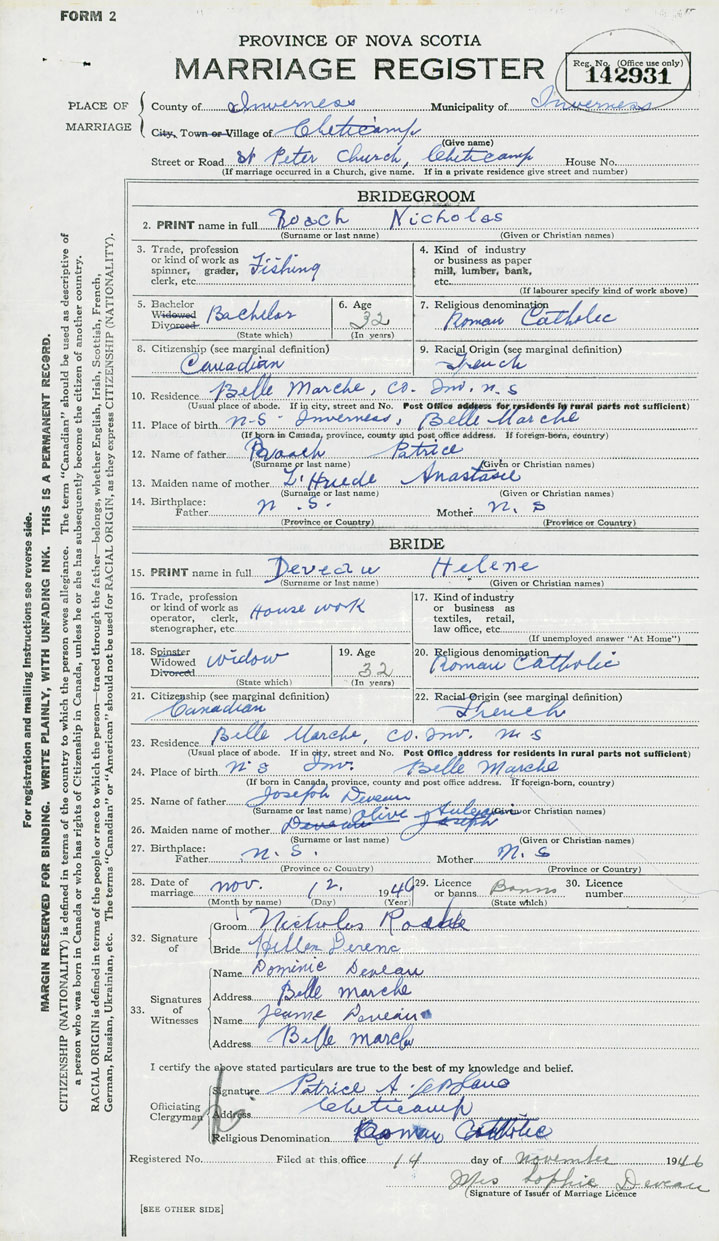 FORM 2
PROVINCE OF NOVA SCOTIA
MARRIAGE REGISTER
Reg. No. (Office use only)
142931
PLACE OF MARRIAGE
County of Inverness Municipality of Inverness
City, Town or Village of Cheticamp
(Give name)
Street or Road St Peter Church, Cheticamp House No.
(If marriage occurred in a Church, give name. If in a private residence give street and number)
BRIDEGROOM
2. PRINT name in full Roach Nicholas
(Surname or last name) (Given or Christian names)
3. Trade, profession or kind of work as spinner, grader, clerk, etc. Fishing
4. Kind of industry or business as paper mill, lumber, bank, etc.
(If labourer specify kind of work above)
5. Bachelor Widowed Divorced Bachelor
(State which)
6. Age 32
(In years)
7. Religious denomination
Roman Catholic
8. Citizenship (see marginal definition)
Canadian
9. Racial Origin (see marginal definition)
French
10. Residence Belle Marche, Co. Inv. N.S
(Usual place of abode. If in city, street and No. Post Office address for residents in rural parts not sufficient)
11. Place of birth N-S- Inverness, Belle Marche
(If born in Canada, province, county and post office address. If foreign-born, country)
12. Name of father Roach Patrice
(Surname or last name) (Given or Christian names)
13. Maiden name of mother Anastasie
(Surname or last name) (Given or Christian names)
14. Birthplace: Father N.S. Mother N.S
(Province or Country) (Province or Country)
BRIDE
15. PRINT name in full Deveau Helene
(Surname or last name) (Given or Christian names)
16. Trade, profession or kind of work as operator, clerk, stenographer, etc. House work
17. Kind of industry or business as textiles, retail, law office, etc.
(If unemployed answer "At Home")
18. Spinster Widowed Divorced Widow
(State which)
19. Age 32
(In years)
20. Religious denomination
Roman Catholic
21. Citizenship (see marginal definition)
Canadian
22. Racial Origin (see marginal definition)
French
23. Residence Belle Marche, Co. Inv. N S
(Usual place of abode. If in city, street and No. Post Office address for residents in rural parts not sufficient)
24. Place of birth N.S Inv. Belle Marche
(If born in Canada, province, county and post office address. If foreign-born, country)
25. Name of father Joseph Deveau
(Surname or last name) (Given or Christian names)
26. Maiden name of mother Deveau Olive Joseph
(Surname or last name) (Given or Christian names)
27. Birthplace: Father N.S. Mother N.S
(Province or Country) (Province or Country)
28. Date of marriage Nov. 12. 1946
(Month by name) (Day) (Year)
29. Licence or banns Banns
(State which)
30. Licence number
32. Signature of
Groom Nicholas
Bride Hellen
33. Signatures of Witnesses
Name Dominic Deveau
Address Belle Marche
Name Deveau
Address Belle Marche
I certify the above stated particulars are true to the best of my knowledge and belief.
Officiating Clergyman
Signature Patrice A. LeBlanc
Address Cheticamp
Religious Denomination Roman Catholic
Registered No. Filed at this office 14 day of November 1946
Mrs Sophie Deveau
(Signature of Issuer of Marriage Licence)
[SEE OTHER SIDE]
For registration and mailing Instructions see reverse side.
MARGIN RESERVED FOR BINDING. WRITE PLAINLY, WITH UNFADING INK. THIS IS A PERMANENT RECORD.
CITIZENSHIP (NATIONALITY) is defined in terms of the country to which the person owes allegiance. The term "Canadian" should be used as descriptive of
a person who was born in Canada or who has rights of Citizenship in Canada, unless he or she has subsequently become the citizen of another country.
RACIAL ORIGIN is defined in terms of the people or race to which the person—traced through the father—belongs, whether English, Irish, Scottish, French,
German, Russian, Ukrainian, etc. The terms "Canadian" or "American" should not be used for RACIAL ORIGIN, as they express CITIZENSHIP (NATIONALITY).